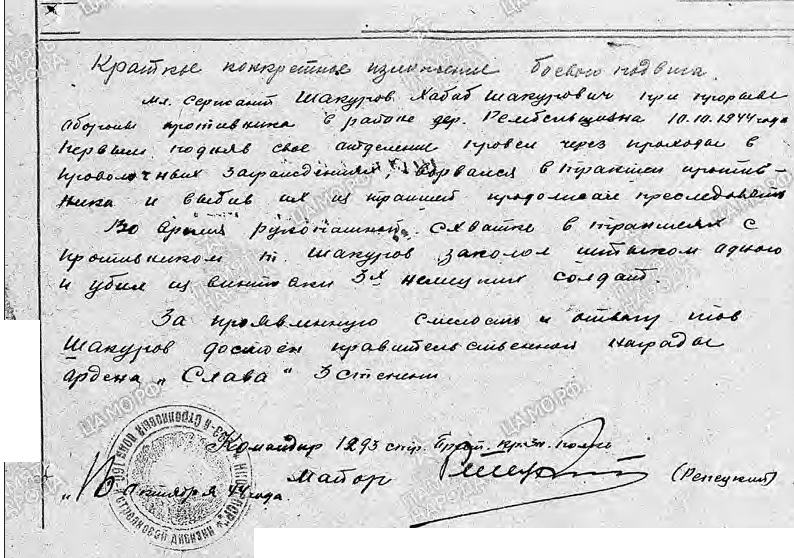 Краткое конкретное изложение боевого подвига.
Мл. сержант Шакуров Хабаб Шакурович при прорыве
обороны противника в районе дер. Рембельщизна 10.10.1944 года
первым подняв свое отделение провел через проходы в
проволочных заграждениях, ворвался в траншеи против-
ника и выбив их из траншей продолжал преследовать
Во время рукопашной схватки в траншеях с
противником т. Шакуров заколол штыком одного
и убил из винтовки 3х немецких солдат.
За проявленную смелость и отвагу тов
Шакуров достоен правительственной награды
ордена „Слава" 3 степени
Командир 1293 стр. полка
майор (Репецкий)
„16 октября 44 года.
ЦАМО.РФ